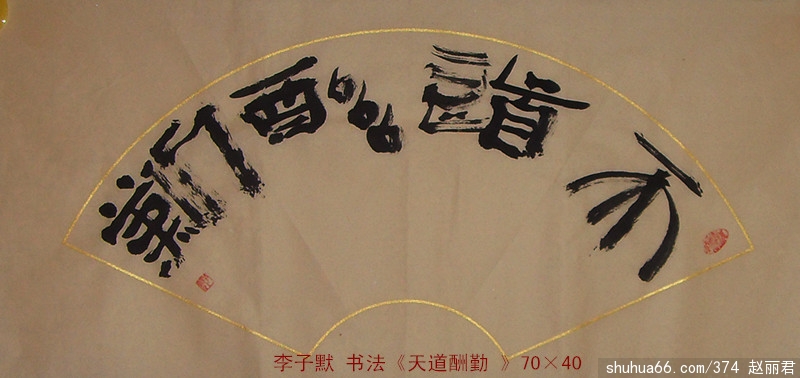 天道酬勤
李子默 书法《天道酬勤 》70×40
shuhua66.com/374 赵丽君